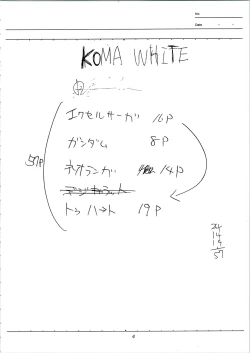 No.
Date
KOMA WHITE
エクセルサーガ 16P
ガンダム 8P
ナオランガ 14P
デジキャラット
トゥハート 19P
57P
24
14
19
57